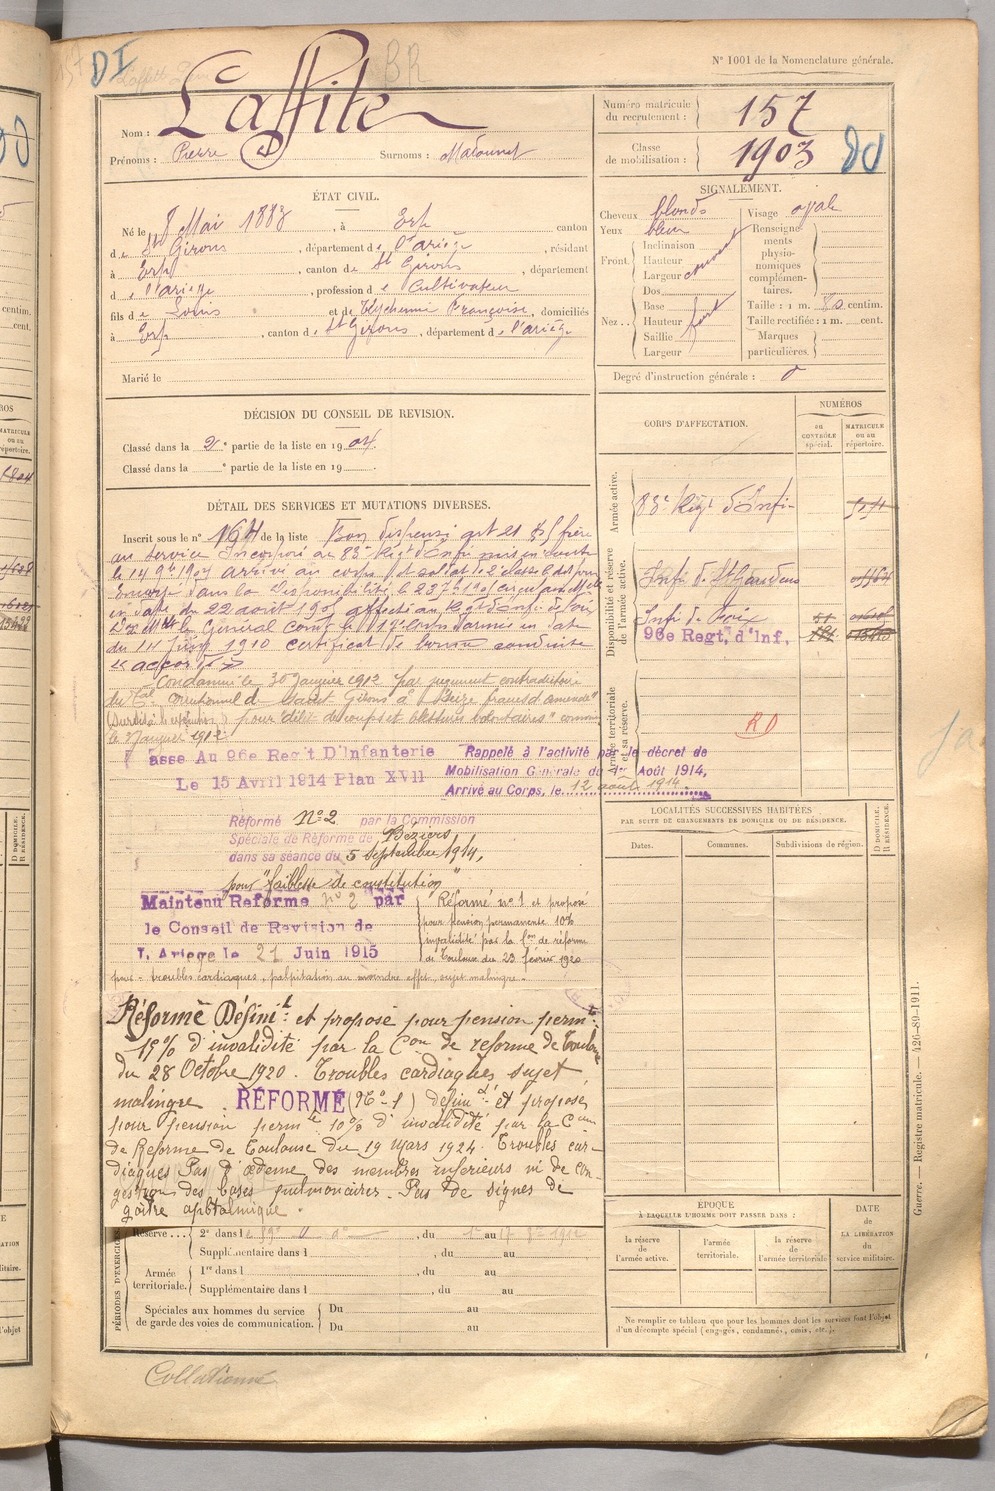 DI
BR
N° 1001 de la Nomenclature générale.
Nom : Laffite
Prénoms : Pierre Surnoms :
Numéro matricule du recrutement : 157
Classe de mobilisation : 1903
ÉTAT CIVIL.
Né le 8 Mai 1883, à Erp canton
de St Girons, département de l'ariège, résidant
à Erp, canton de St Girons, département
de l'ariège, profession de Cultivateur
fils de Louis et de Françoise, domiciliés
à Erp, canton de St Girons, département de l'ariège
Marié le
SIGNALEMENT.
Cheveux blonds
Yeux bleus
Front. Inclinaison
Hauteur
Largeur
Nez. Dos
Base
Hauteur
Saillie
Largeur
fort
Visage ovale
Renseignements physionomiques complémentaires.
Taille : 1 m. 80 centim.
Taille rectifiée : 1 m. cent.
Marques particulières.
Degré d'instruction générale : 0
DÉCISION DU CONSEIL DE REVISION.
Classé dans la 2e partie de la liste en 1904.
Classé dans la e partie de la liste en 19
DÉTAIL DES SERVICES ET MUTATIONS DIVERSES.
Inscrit sous le n° 164 de la liste Bon dispensé art 21 frère
au service Incorporé au 83e Regt d'Infie mis en route
le 14 9bre 1904 arrivé au corps et soldat de 2e classe le dit jour
Envoyé dans la disponibilité le 23 7bre 1905
en date du 22 août 1905 affecté au Regt d'Infie de Foix
le Général Comt le 17e corps d'armée en date
du 14 1910 certificat de bonne conduite
"accordé"
Condamné le 30 Janvier 1912 par jugement contradictoire
du Tal correctionnel de Saint Girons à Seize francs d'amende
pour "délit de coups et blessures volontaires" commis
le Janvier 1912.
asse Au 96e Regt D'Infanterie
Le 15 Avril 1914 Plan XVII
Rappelé à l'activité par le décret de
Mobilisation Générale du 1er Août 1914,
Arrivé au Corps, le 12 août 1914.
Réformé N° 2 par la Commission
Spéciale de Réforme de Béziers
dans sa séance du 5 septembre 1914,
pour "faiblesse de constitution"
Maintenu Réformé n° 2 par
le Conseil de Revision de
l'Ariege le 21 Juin 1915
Réformé n° 1 et proposé
pour pension permanente 10%
invalidité par la Con de réforme
de Toulouse du 23 février 1920
pour : troubles cardiaques, palpitation au moindre effort, sujet malingre.
Réformé Définit et proposé pour pension permte
15% d'invalidité par la Con de reforme de Toulouse
du 28 Octobre 1920. Troubles cardiaques sujet
malingre. RÉFORMÉ (N°-1) définit et proposé
pour pension permte 10% d'invalidité par la Con
de Réforme de Toulouse du 19 mars 1924. Troubles car-
diaques Pas d'œdeme des membres inferieurs ni de con
gestion des bases pulmonaires. Pas de signes de
goitre
CORPS D'AFFECTATION.
NUMÉROS
au CONTRÔLE spécial.
MATRICULE ou au répertoire.
Armée active.
83e Regt d'Infie
Disponibilité et réserve de l'armée active.
Infie de St Gaudens
Infie de Foix
96e Regt, d'Inf,
Armée territoriale et sa réserve.
RD
LOCALITÉS SUCCESSIVES HABITÉES
PAR SUITE DE CHANGEMENTS DE DOMICILE OU DE RÉSIDENCE.
Dates. Communes. Subdivisions de région.
D DOMICILE. R RÉSIDENCE.
ÉPOQUE
À LAQUELLE L'HOMME DOIT PASSER DANS :
la réserve de l'armée active.
l'armée territoriale.
la réserve de l'armée territoriale
DATE de LA LIBÉRATION du service militaire.
Ne remplir ce tableau que pour les hommes dont les services font l'objet
d'un décompte spécial (engagés, condamnés, omis, etc.).
PÉRIODES D'EXERCICES
Réserve 2e dans l, du au 1912
Supplémentaire dans l, du au
Armée territoriale. 1re dans l, du au
Supplémentaire dans l, du au
Spéciales aux hommes du service de garde des voies de communication. Du au
Du au
Guerre. — Registre matricule. — 426-89-1911.
Collationné